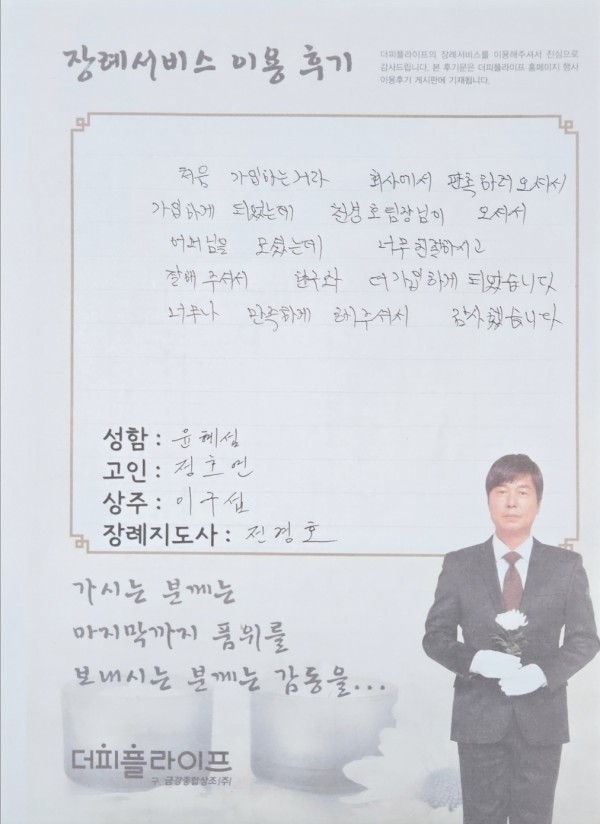 장례서비스 이용 후기
더피플라이프의 장례서비스를 이용해주셔서 진심으로
감사드립니다. 본 후기문은 더피플라이프 홈페이지 행사
이용후기 게시판에 기재됩니다.
처음 가입하는거라 회사에서 판촉하러 오셔서
가입하게 되었는데 전경호팀장님이 오셔서
어머님을 모셨는데 너무 친절하시고
잘해 주셔서 친구와 더 가입하게 되었습니다
너무나 만족하게 해주셔서 감사했습니다
성함 : 윤혜섬
고인 : 정호연
상주 : 이구섭
장례지도사 : 전경호
가시는 분께는
마지막까지 품위를
보내시는 분께는 감동을...
더피플라이프
구. 금강종합상조(주)